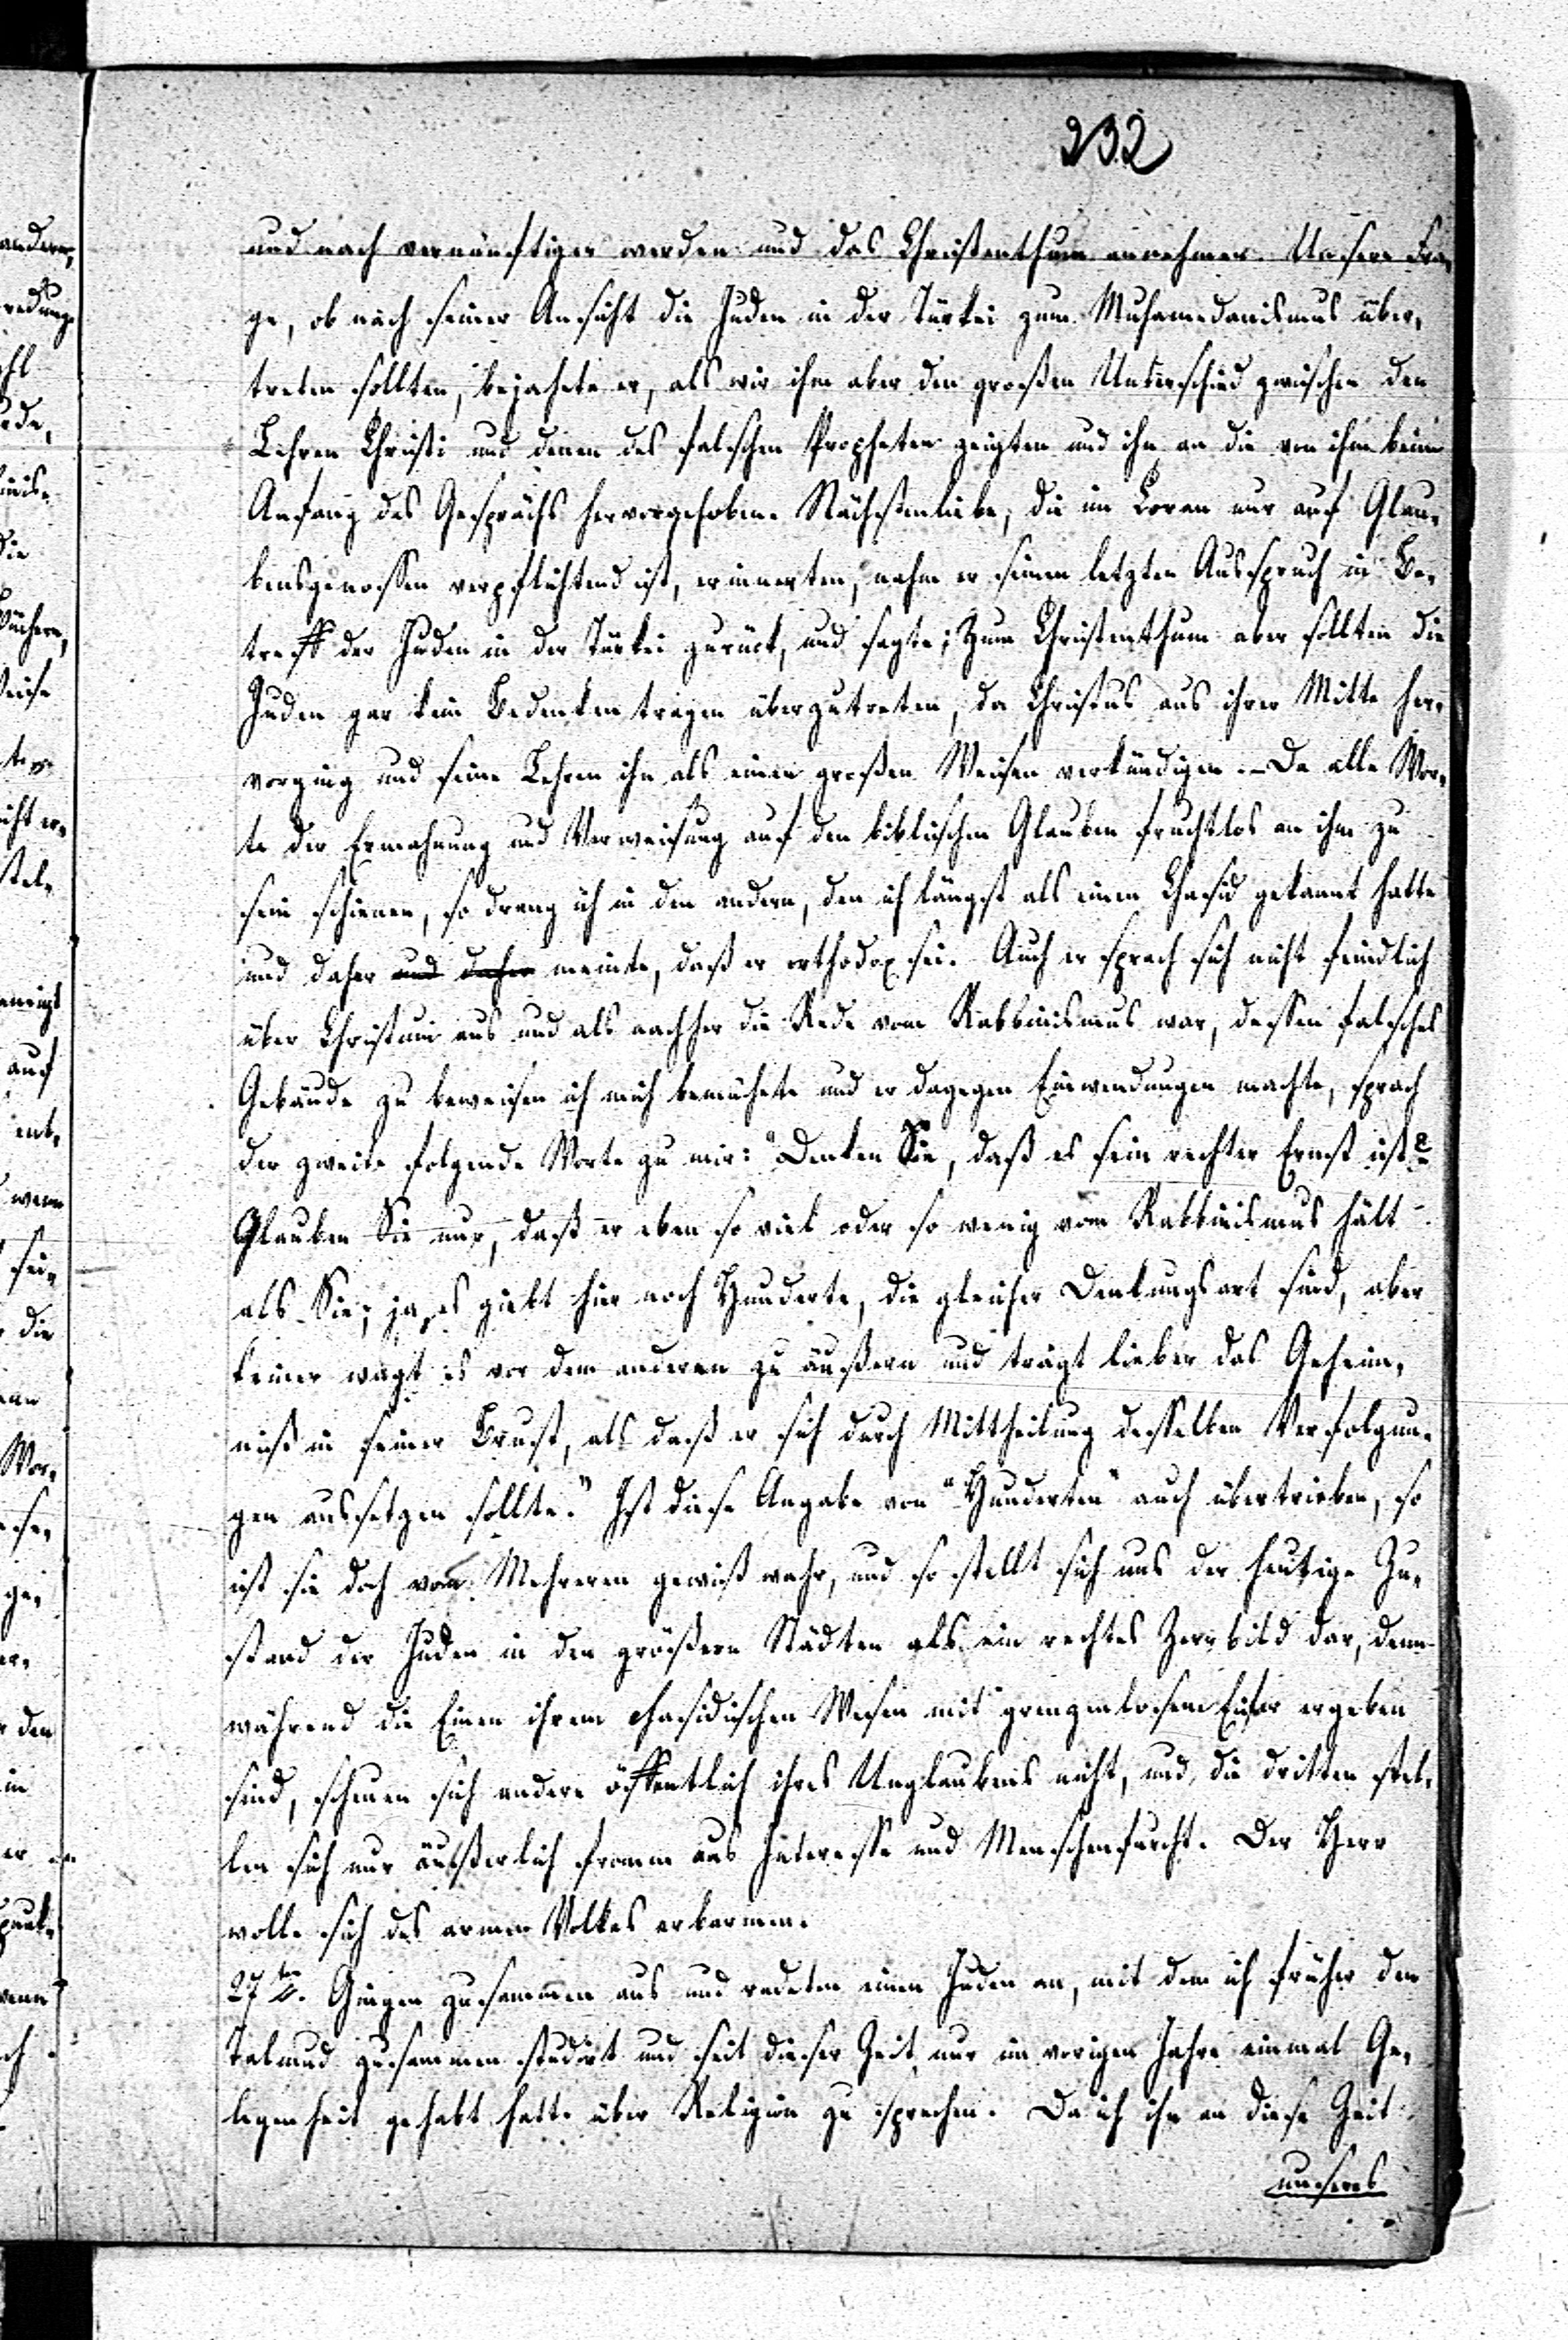 232
und noch vernünftiger werden und das Christenthum annehmen. Unsere Fra-
ge, ob nach seiner Ansicht die Juden in der Türkei zum Muhamedanismus über-
treten sollten, bejahete er, als wir ihm aber den großen Unterschied zwischen den
Lehren Christi und denen des falschen Propheten zeigten und ihn an die von ihm beim
Anfang des Gesprächs hervorgehobene Nächstenliebe, die im Coran nur auf Glau-
bensgenossen verpflichtend ist, erinnerten, nahm er seinen letzten Ausspruch in Be-
treff der Juden in der Türkei zurück, und sagte: Zum Christenthum aber sollten die
Juden gar kein Bedenken tragen überzutreten, da Christus aus ihrer Mitte her-
vorging und seine Lehren ihn als einen großen Weisen verkündigen. – Da alle Wor-
te der Ermahnung und Verweisung auf den biblischen Glauben fruchtlos an ihm zu
sein schienen, so drang ich in den andern, den ich längst als einen Chasid gekannt hatte
und daher und daher meinte, daß er orthodox sei. Auch er sprach sich nicht feindlich
über Christum aus und als nachher die Rede vom Rabbinismus war, dessen falsches
Gebäude zu beweisen ich mich bemühete und er dagegen Einwendungen machte, sprach
der zweite folgende Worte zu mir: "Denken Sie, daß es sein rechter Ernst ist?
Glauben Sie nur, daß er eben so viel oder so wenig vom Rabbinismus hält
als Sie; ja, es giebt hier noch Hunderte, die gleicher Denkungsart sind, aber
keiner wagt es vor dem anderen zu äußern und trägt lieber das Geheim-
niß in seiner Brust, als daß er sich durch Mittheilung desselben Verfolgun-
gen aussetzen sollte." Ist diese Angabe von "Hunderten" auch übertrieben, so
ist sie doch von Mehreren gewiß wahr, und so stellt sich uns der heutige Zu-
stand der Juden in den größern Städten als ein rechtes Zerrbild dar, denn
während die Einen ihrem chasidischen Wesen mit grenzenlosem Eifer ergeben
sind, schämen sich andere öffentlich ihres Unglaubens nicht, und die dritten stel-
len sich nur äußerlich fromm aus Interesse und Menschenfurcht. Der Herr
wolle sich des armen Volkes erbarmen.
27ten. Gingen zusammen aus und redeten einen Juden an, mit dem ich früher den
Talmud zusammen studirt und seit dieser Zeit nur im vorigen Jahre einmal Ge-
legenheit gehabt hatte über Religion zu sprechen. Da ich ihn an diese Zeit
unseres